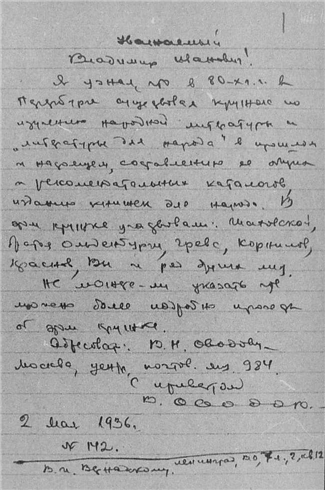 Уважаемый
Владимир Иванович!
Я узнал, что в 80-х г.г. в
Петербурге существовал кружок по
изучению народной литературы и
„литературы для народа" в прошлом
и настоящем, составлению ее общих
и рекомендательных каталогов,
изданию книжек для народа. В
этом кружке участвовали: Шаховской,
братья Ольденбурги, Гревс, Корнилов,
Краснов, Вы и ряд других лиц.
Не можете-ли указать где
можно более подробно прочесть
об этом кружке.
Адресовать: В. Н.
Москва, центр, почтов. ящ. 984.
С приветом
В.
2 мая 1936.
N 142.
В. И. Вернадскому. Ленинград, ВО, 7 л., 2, кв. 12